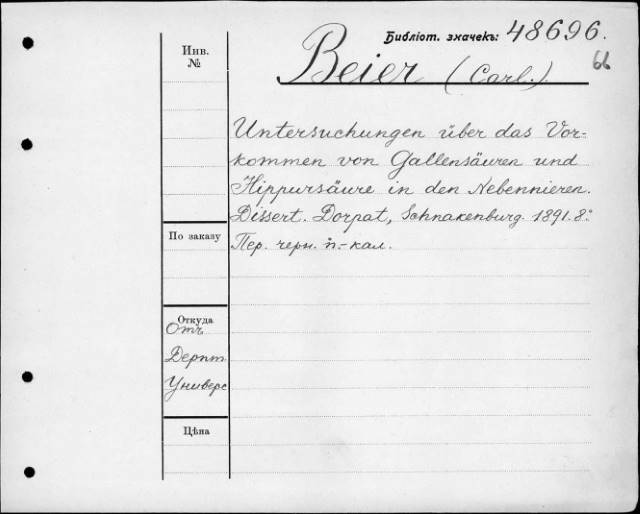 Библіот. значекъ: 48696.
66
Инв.
№
Beier (Carl.)
Untersuchungen über das Vor-
kommen von Gallensäuren und
Hippursäure in den Nebennieren.
Dissert. Dorpat, Schnakenburg. 1891. 8º
Пер. черн. п.-кал.
По заказу
Откуда
Отъ
Дерпт.
Универс
Цѣна